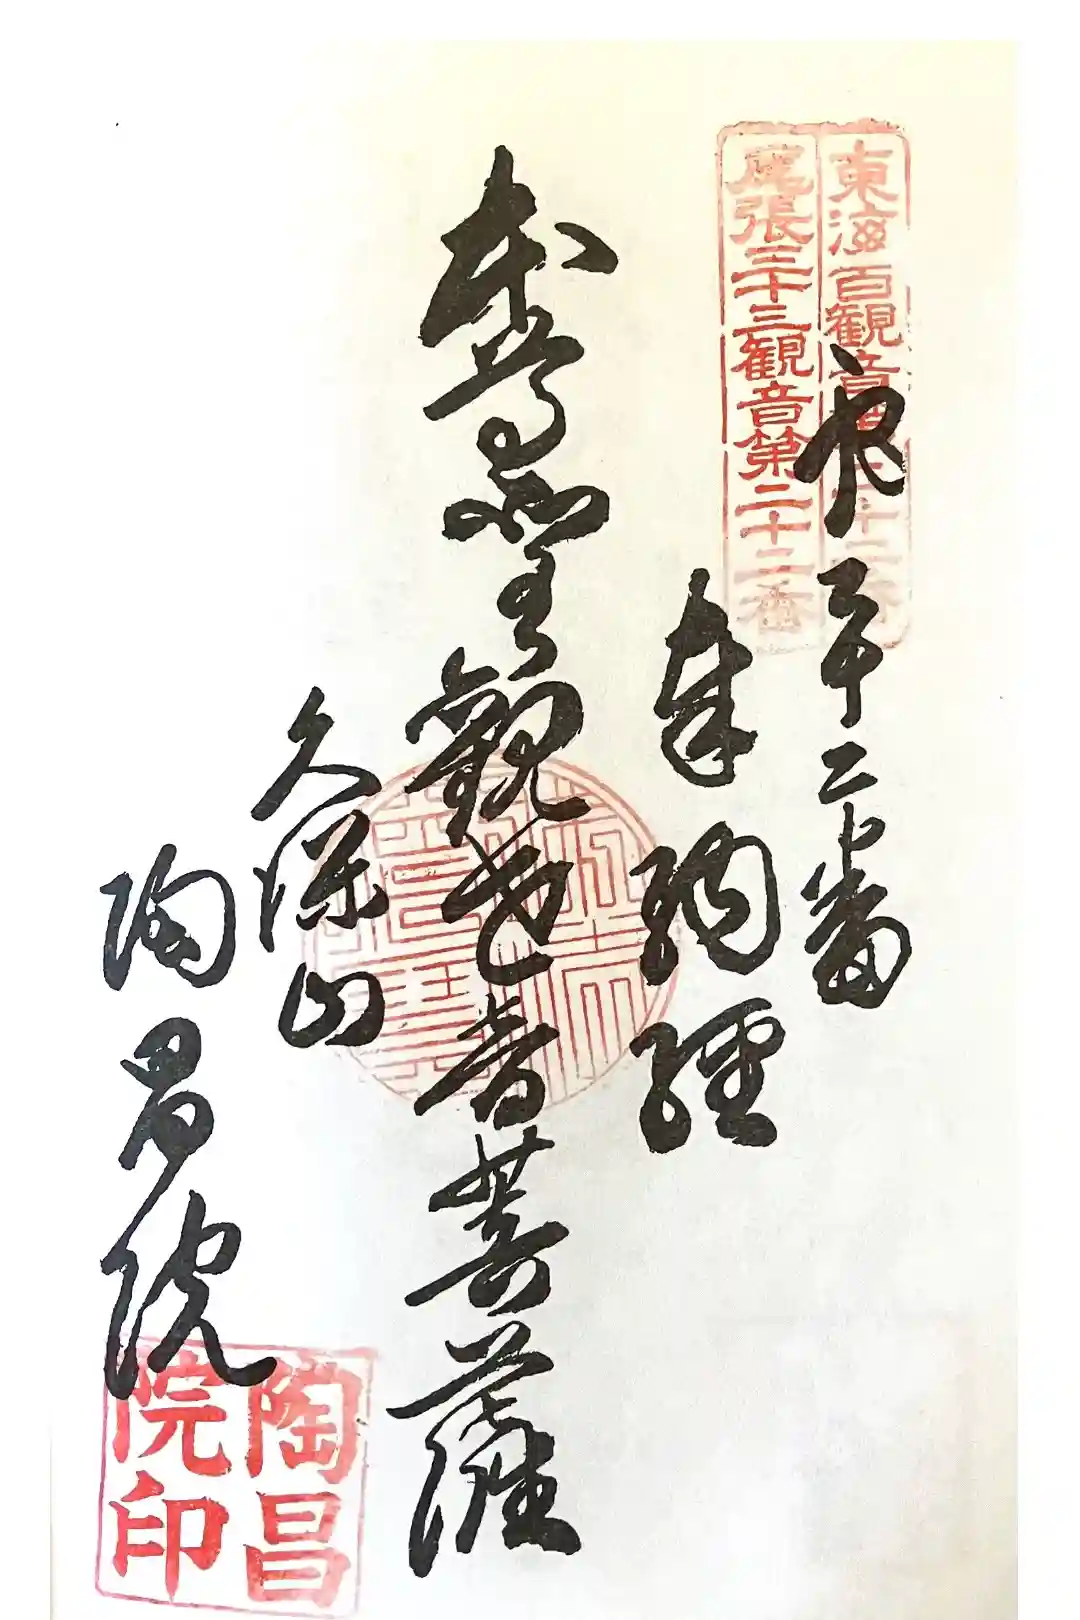 東海百観音第二十二番
尾張三十三観音第二十二番
二十二番
奉納経
本尊聖観世音菩薩
久保山
陶昌院
陶昌院印